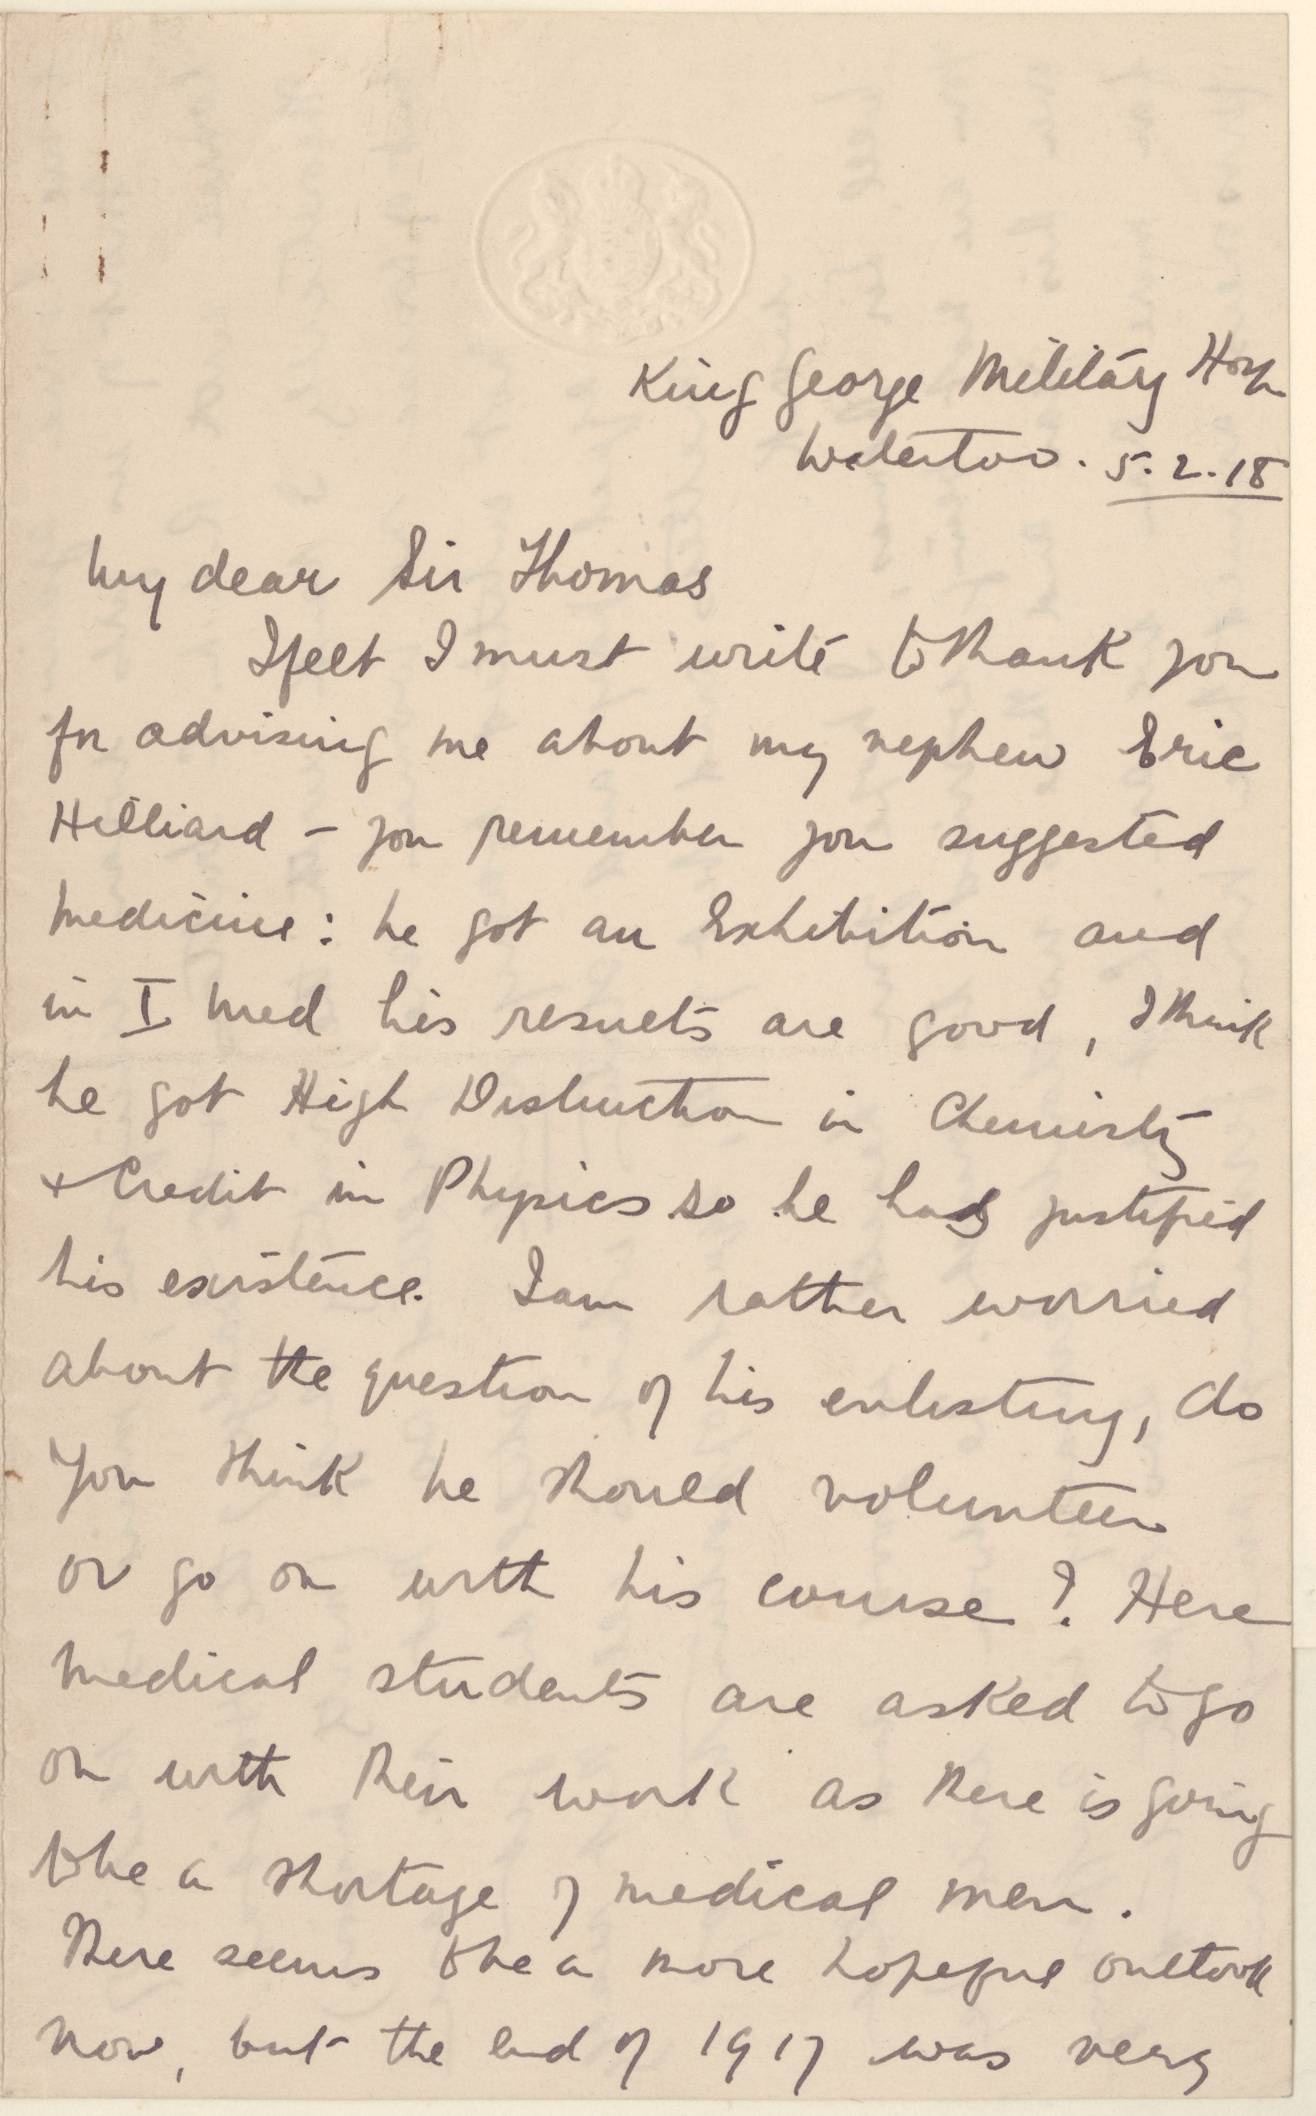 King George Military Hosp
Waterloo. 5.2.18
My dear Sir Thomas
I felt I must write to thank you
for advising me about my nephew Eric
Hilliard - you remember you suggested
medicine: he got an Exhibition and
in I Med his results are good, I think
he got High Distinction in Chemistry
+ Credit in Physics so he has justified
his existence. I am rather worried
about the question of his enlisting, do
you think he should volunteer
or go on with his course? Here
medical students are asked to go
on with their work as there is going
to be a shortage of medical men.
There seems to be a more hopeful outlook
now, but the end of 1917 was very